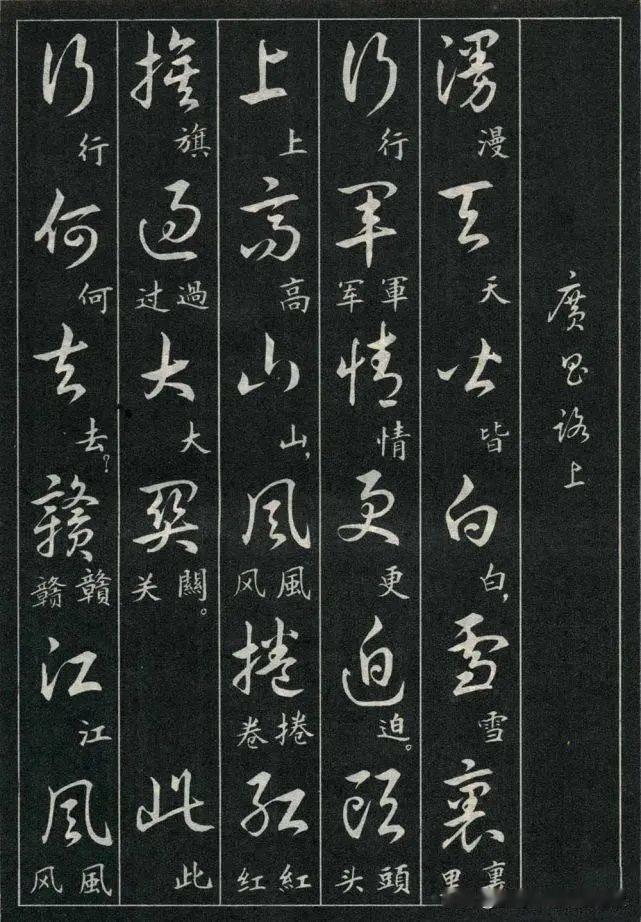 廣昌路上
漫天皆白雪裏
漫天皆白，雪裏
里
行軍情更迫頭
行軍情更迫。頭
军头
上高山風捲紅
上高山，風捲紅
风卷红
旗過大關此
旗過大關。此
过关
行何去贛江風
行何去？贛江風
赣风